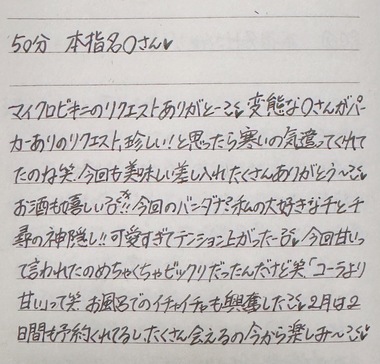 50分 本指名Oさん♥
マイクロビキニのリクエストありがと〜♥ 変態なOさんがパー
カーありのリクエスト、珍しい!と思ったら寒いの気遣ってくれて
たのね笑 今回も美味しい差し入れたくさんありがとう〜♥
お酒も嬉しい♥!! 今回のバンダナ私の大好きな千と千
尋の神隠し!! 可愛すぎてテンション上がったー♥ 今回甘いっ
て言われたのめちゃくちゃビックリだったんだけど笑「コーラより
甘い」って笑 お風呂でのイチャイチャも興奮した♥ 2月は2
日間も予約くれてるし、たくさん会えるの今から楽しみ〜♥